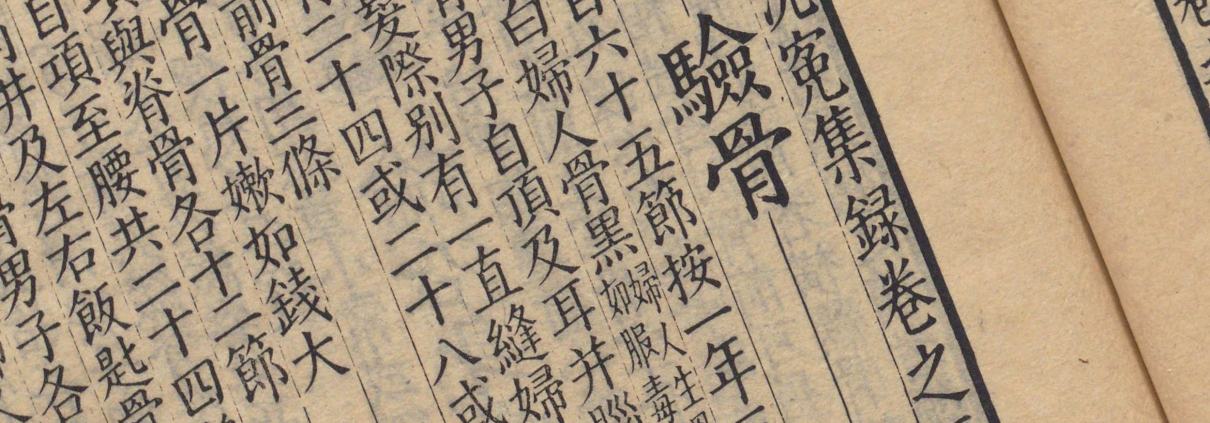 冤集録卷之
驗骨
六十五節按一年
白婦人骨黑
婦人生
如服毒
男子自頂及耳并腦
髮際别有一直縫婦
二十四或二十八或
前骨三條
骨一片嫩如錢大
項與脊骨各十二節
自項至腰共二十四
井及左右飯匙骨
男子各